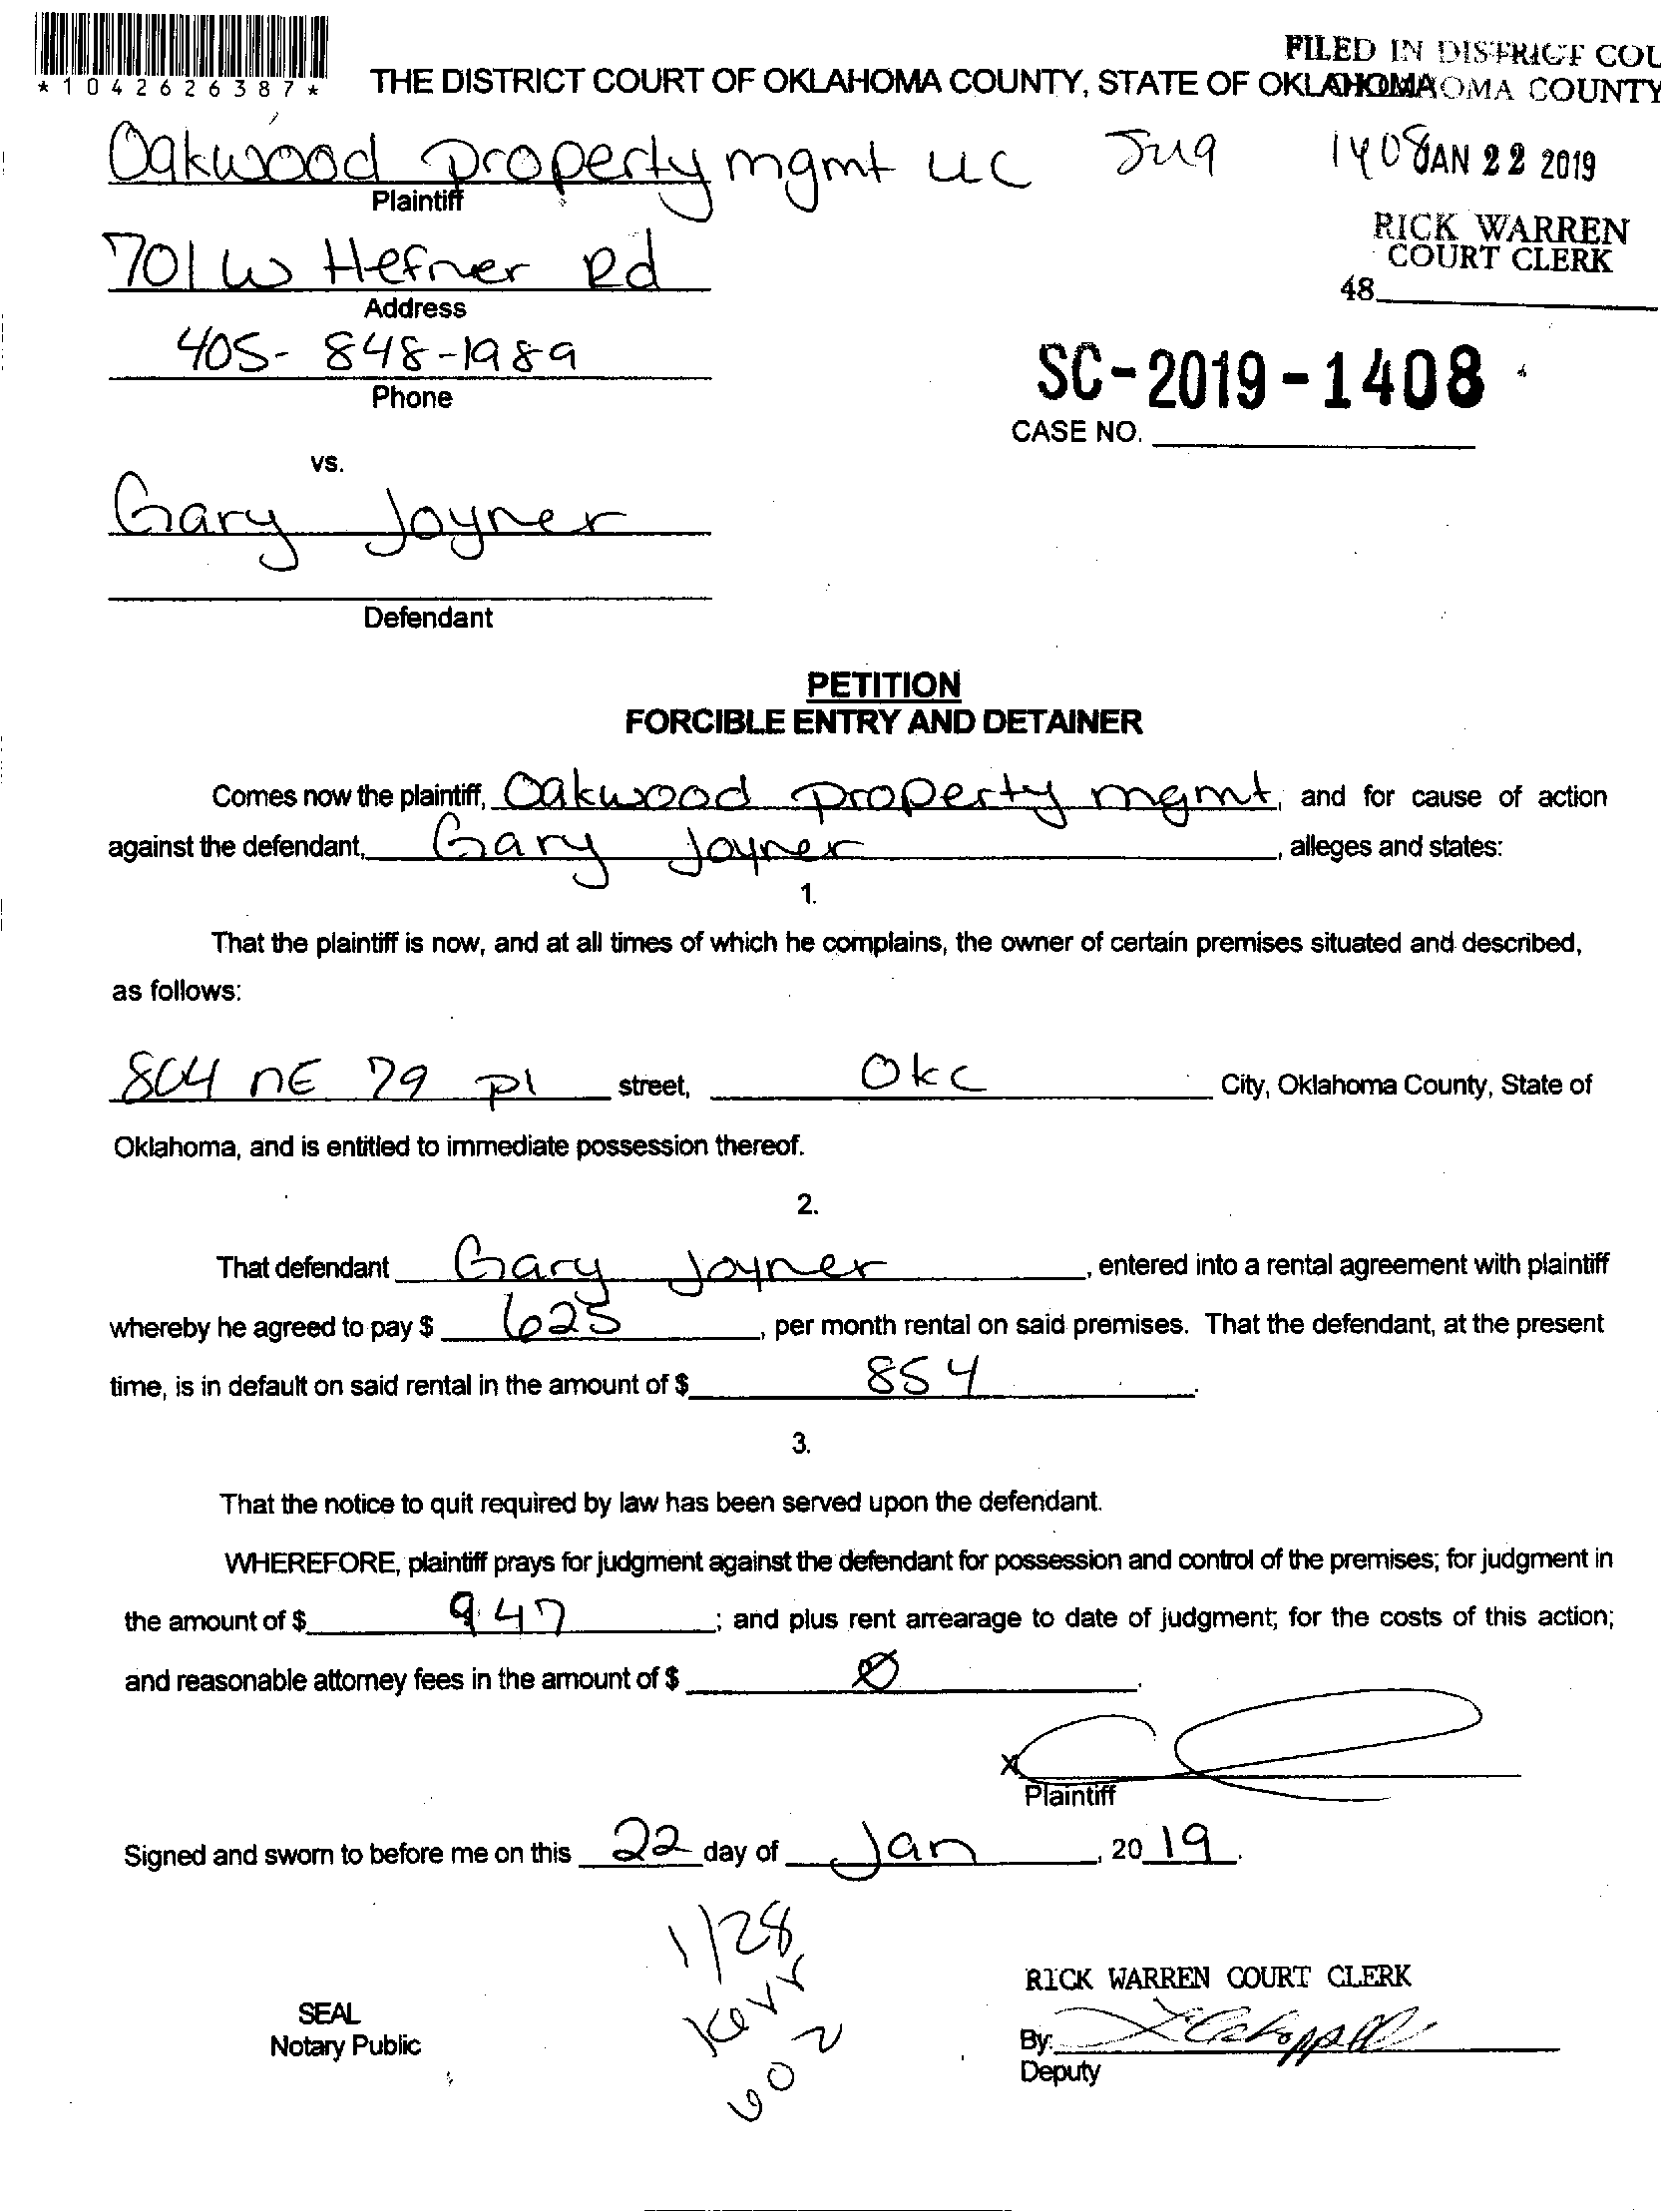 *1042626387*
FILED IN DISTRICT COU
THE DISTRICT COURT OF OKLAHOMA COUNTY, STATE OF OKLAHOMA
OMA COUNTY
Oakwood property mgmt LLC
1408
JAN 22 2019
Plaintiff
RICK WARREN
COURT CLERK
48
701 W Hefner Rd
Address
405-848-1989
Phone
SC-2019-1408
CASE NO.
vs.
Gary Joyner
Defendant
PETITION
FORCIBLE ENTRY AND DETAINER
Comes now the plaintiff, Oakwood property mgmt, and for cause of action
against the defendant, Gary Joyner, alleges and states:
1.
That the plaintiff is now, and at all times of which he complains, the owner of certain premises situated and described,
as follows:
804 NE 79 Pl street, Okc City, Oklahoma County, State of
Oklahoma, and is entitled to immediate possession thereof.
2.
That defendant Gary Joyner, entered into a rental agreement with plaintiff
whereby he agreed to pay $ 625, per month rental on said premises. That the defendant, at the present
time, is in default on said rental in the amount of $ 854.
3.
That the notice to quit required by law has been served upon the defendant.
WHEREFORE, plaintiff prays for judgment against the defendant for possession and control of the premises; for judgment in
the amount of $ 947; and plus rent arrearage to date of judgment; for the costs of this action;
and reasonable attorney fees in the amount of $ 0.
X
Plaintiff
Signed and sworn to before me on this 22 day of Jan, 2019.
1/28
Kerr
602
RICK WARREN COURT CLERK
SEAL
Notary Public
By:
Deputy